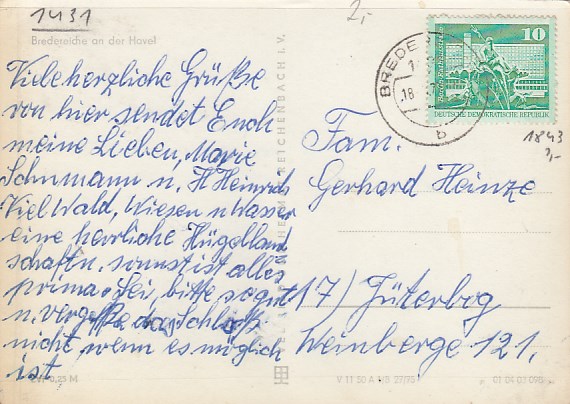 1431
2,-
Bredereiche an der Havel
Viele herzliche Grüße
von hier sendet Euch
meine Lieben, Marie
Schumann u. H Heinrich
Viel Wald, Wiesen u Wasser
eine herrliche Hügelland
schaft. sonnst ist alles
prima. Sei, bitte so gut
u. vergeße das Schloß
nicht, wenn es möglich
ist.
10
DEUTSCHE DEMOKRATISCHE REPUBLIK
BREDE
18
b
1843
Fam.
Gerhard Heinze
17) Jüterbog
Weinberge 121.
REICHENBACH I. V.
0,25 M
V 11 50 A 1/B
01 04 03 095